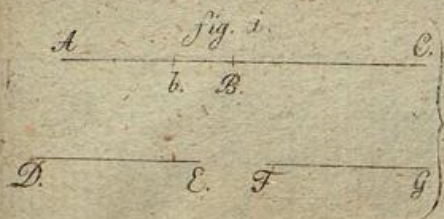 fig. 1.
A C.
b. B.
D. E. F G